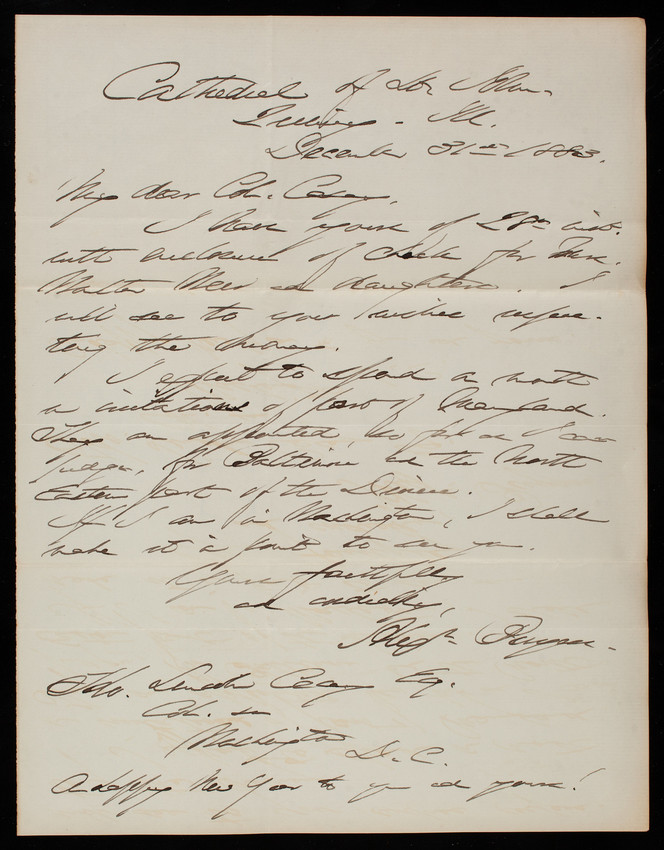 Cathedral of St. John.
Quincy - Ill.
December 31st 1883.
My dear Col. Casey,
I have yours of 28th inst.
with enclosure of check for Mrs.
Walter and daughters. I
will see to your wishes respec-
ting the money.
I expect to spend a month
in visitations of part of Maryland.
They are appointed, so far as I can
judge, for Baltimore and the North
Eastern part of the Diocese.
If I am in Washington, I shall
make it a point to see you.
Yours faithfully
and cordially,
Alex. Burgess.
Tho. Lincoln Casey Esq.
Col.
Washington D. C.
A Happy New Year to you and yours!